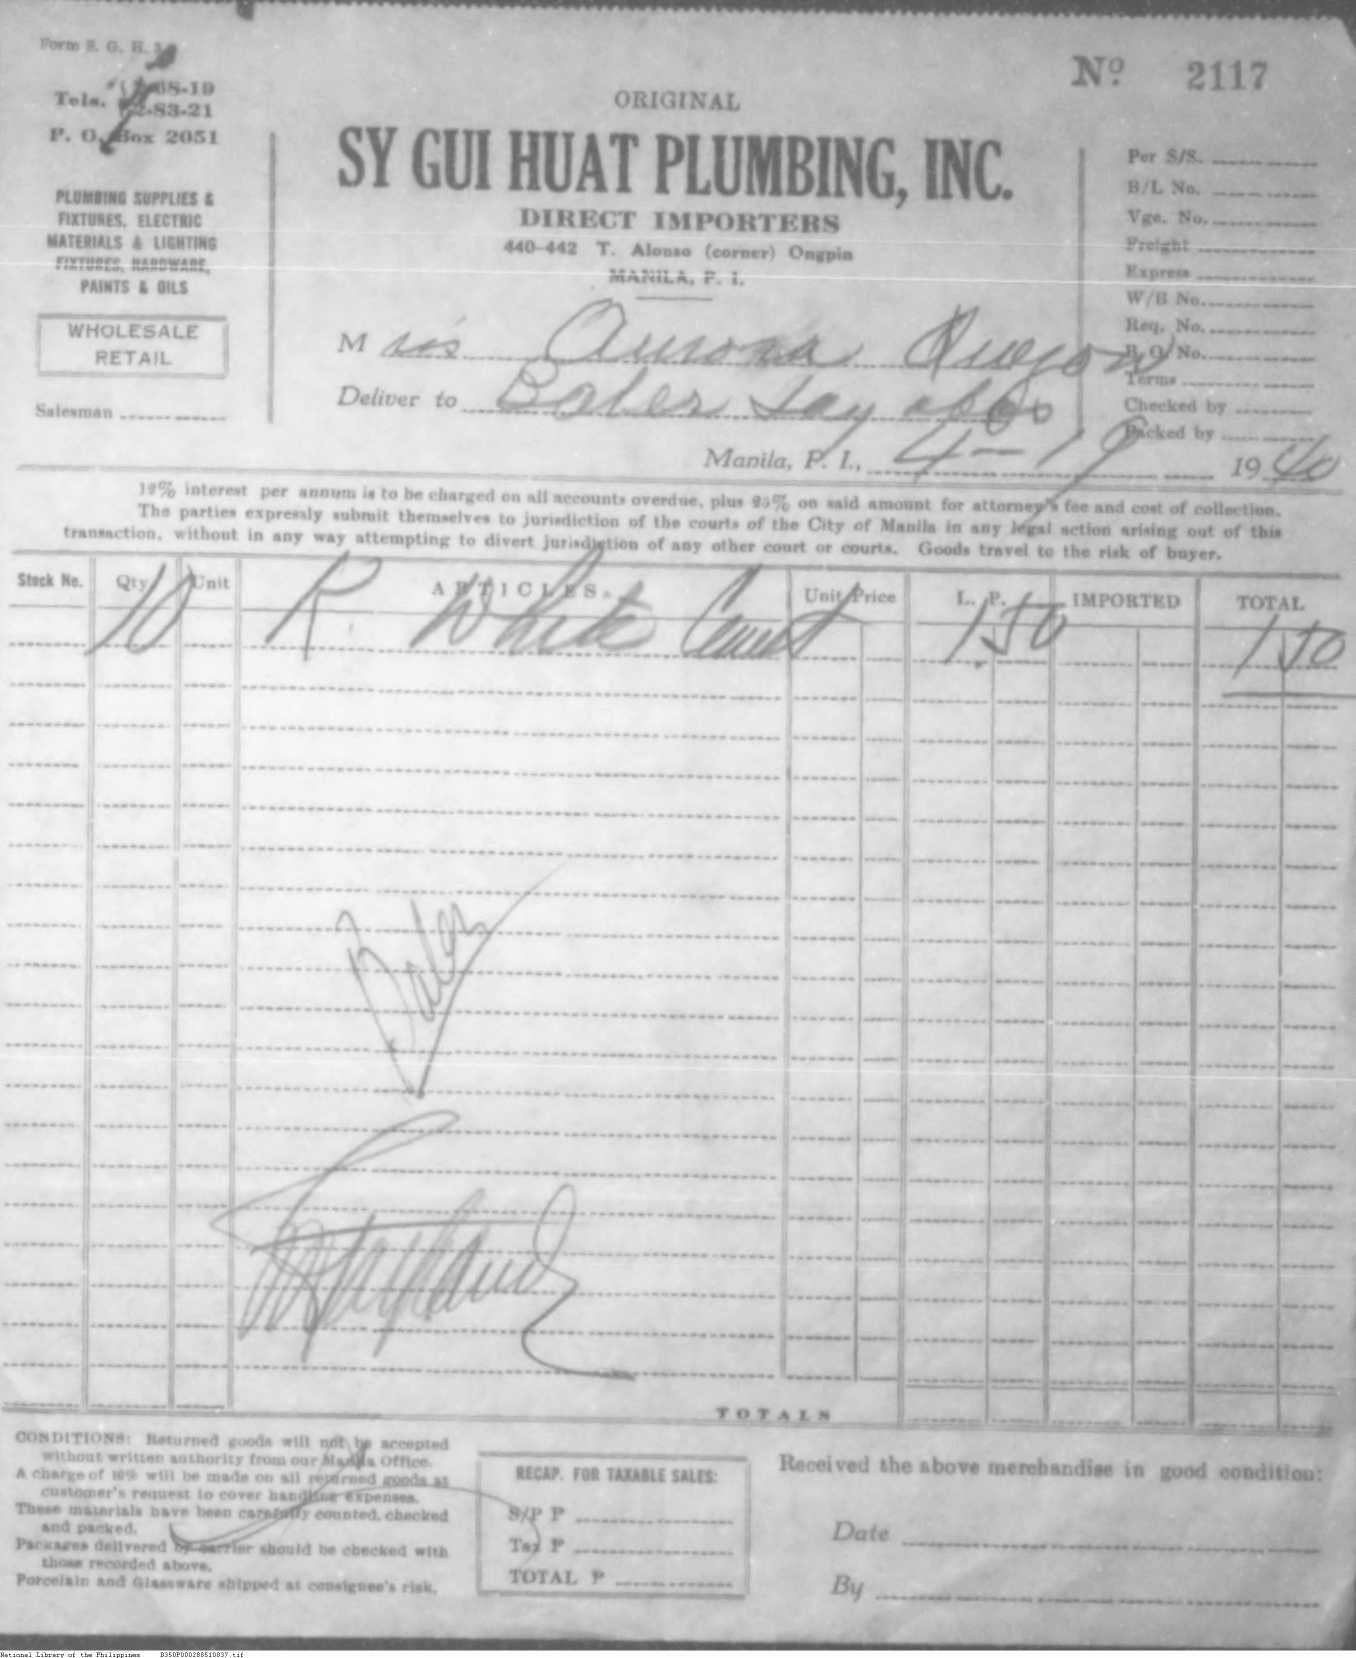 Form S. G. H.
Nº 2117
Tels. 08-19
2-83-21
P. O. Box 2051
ORIGINAL
SY GUI HUAT PLUMBING, INC.
DIRECT IMPORTERS
440-442 T. Alonso (corner) Ongpin
MANILA, P. I.
PLUMBING SUPPLIES &
FIXTURES, ELECTRIC
MATERIALS & LIGHTING
FIXTURES, HARDWARE,
PAINTS & OILS
WHOLESALE
RETAIL
Salesman
Per S/S.
B/L No.
Vge. No.
Freight
Express
W/B No.
Req. No.
P. O. No.
Terms
Checked by
Packed by
M rs Aurora Quezon
Deliver to Baler Tayabas
Manila, P. I., 4-19 1940
12% interest per annum is to be charged on all accounts overdue, plus 25% on said amount for attorney's fee and cost of collection.
The parties expressly submit themselves to jurisdiction of the courts of the City of Manila in any legal action arising out of this
transaction, without in any way attempting to divert jurisdiction of any other court or courts. Goods travel to the risk of buyer.
Stock No. Qty. Unit ARTICLES Unit Price L. P. IMPORTED TOTAL
10 K White Cement 1.50 1 50
Baler
TOTALS
CONDITIONS: Returned goods will not be accepted
without written authority from our Manila Office.
A charge of 10% will be made on all returned goods at
customer's request to cover handling expenses.
These materials have been carefully counted, checked
and packed.
Packages delivered by carrier should be checked with
those recorded above.
Porcelain and Glassware shipped at consignee's risk.
RECAP. FOR TAXABLE SALES:
S/P P
Tax P
TOTAL P
Received the above merchandise in good condition:
Date
By
National Library of the Philippines B350P000288510837.tif